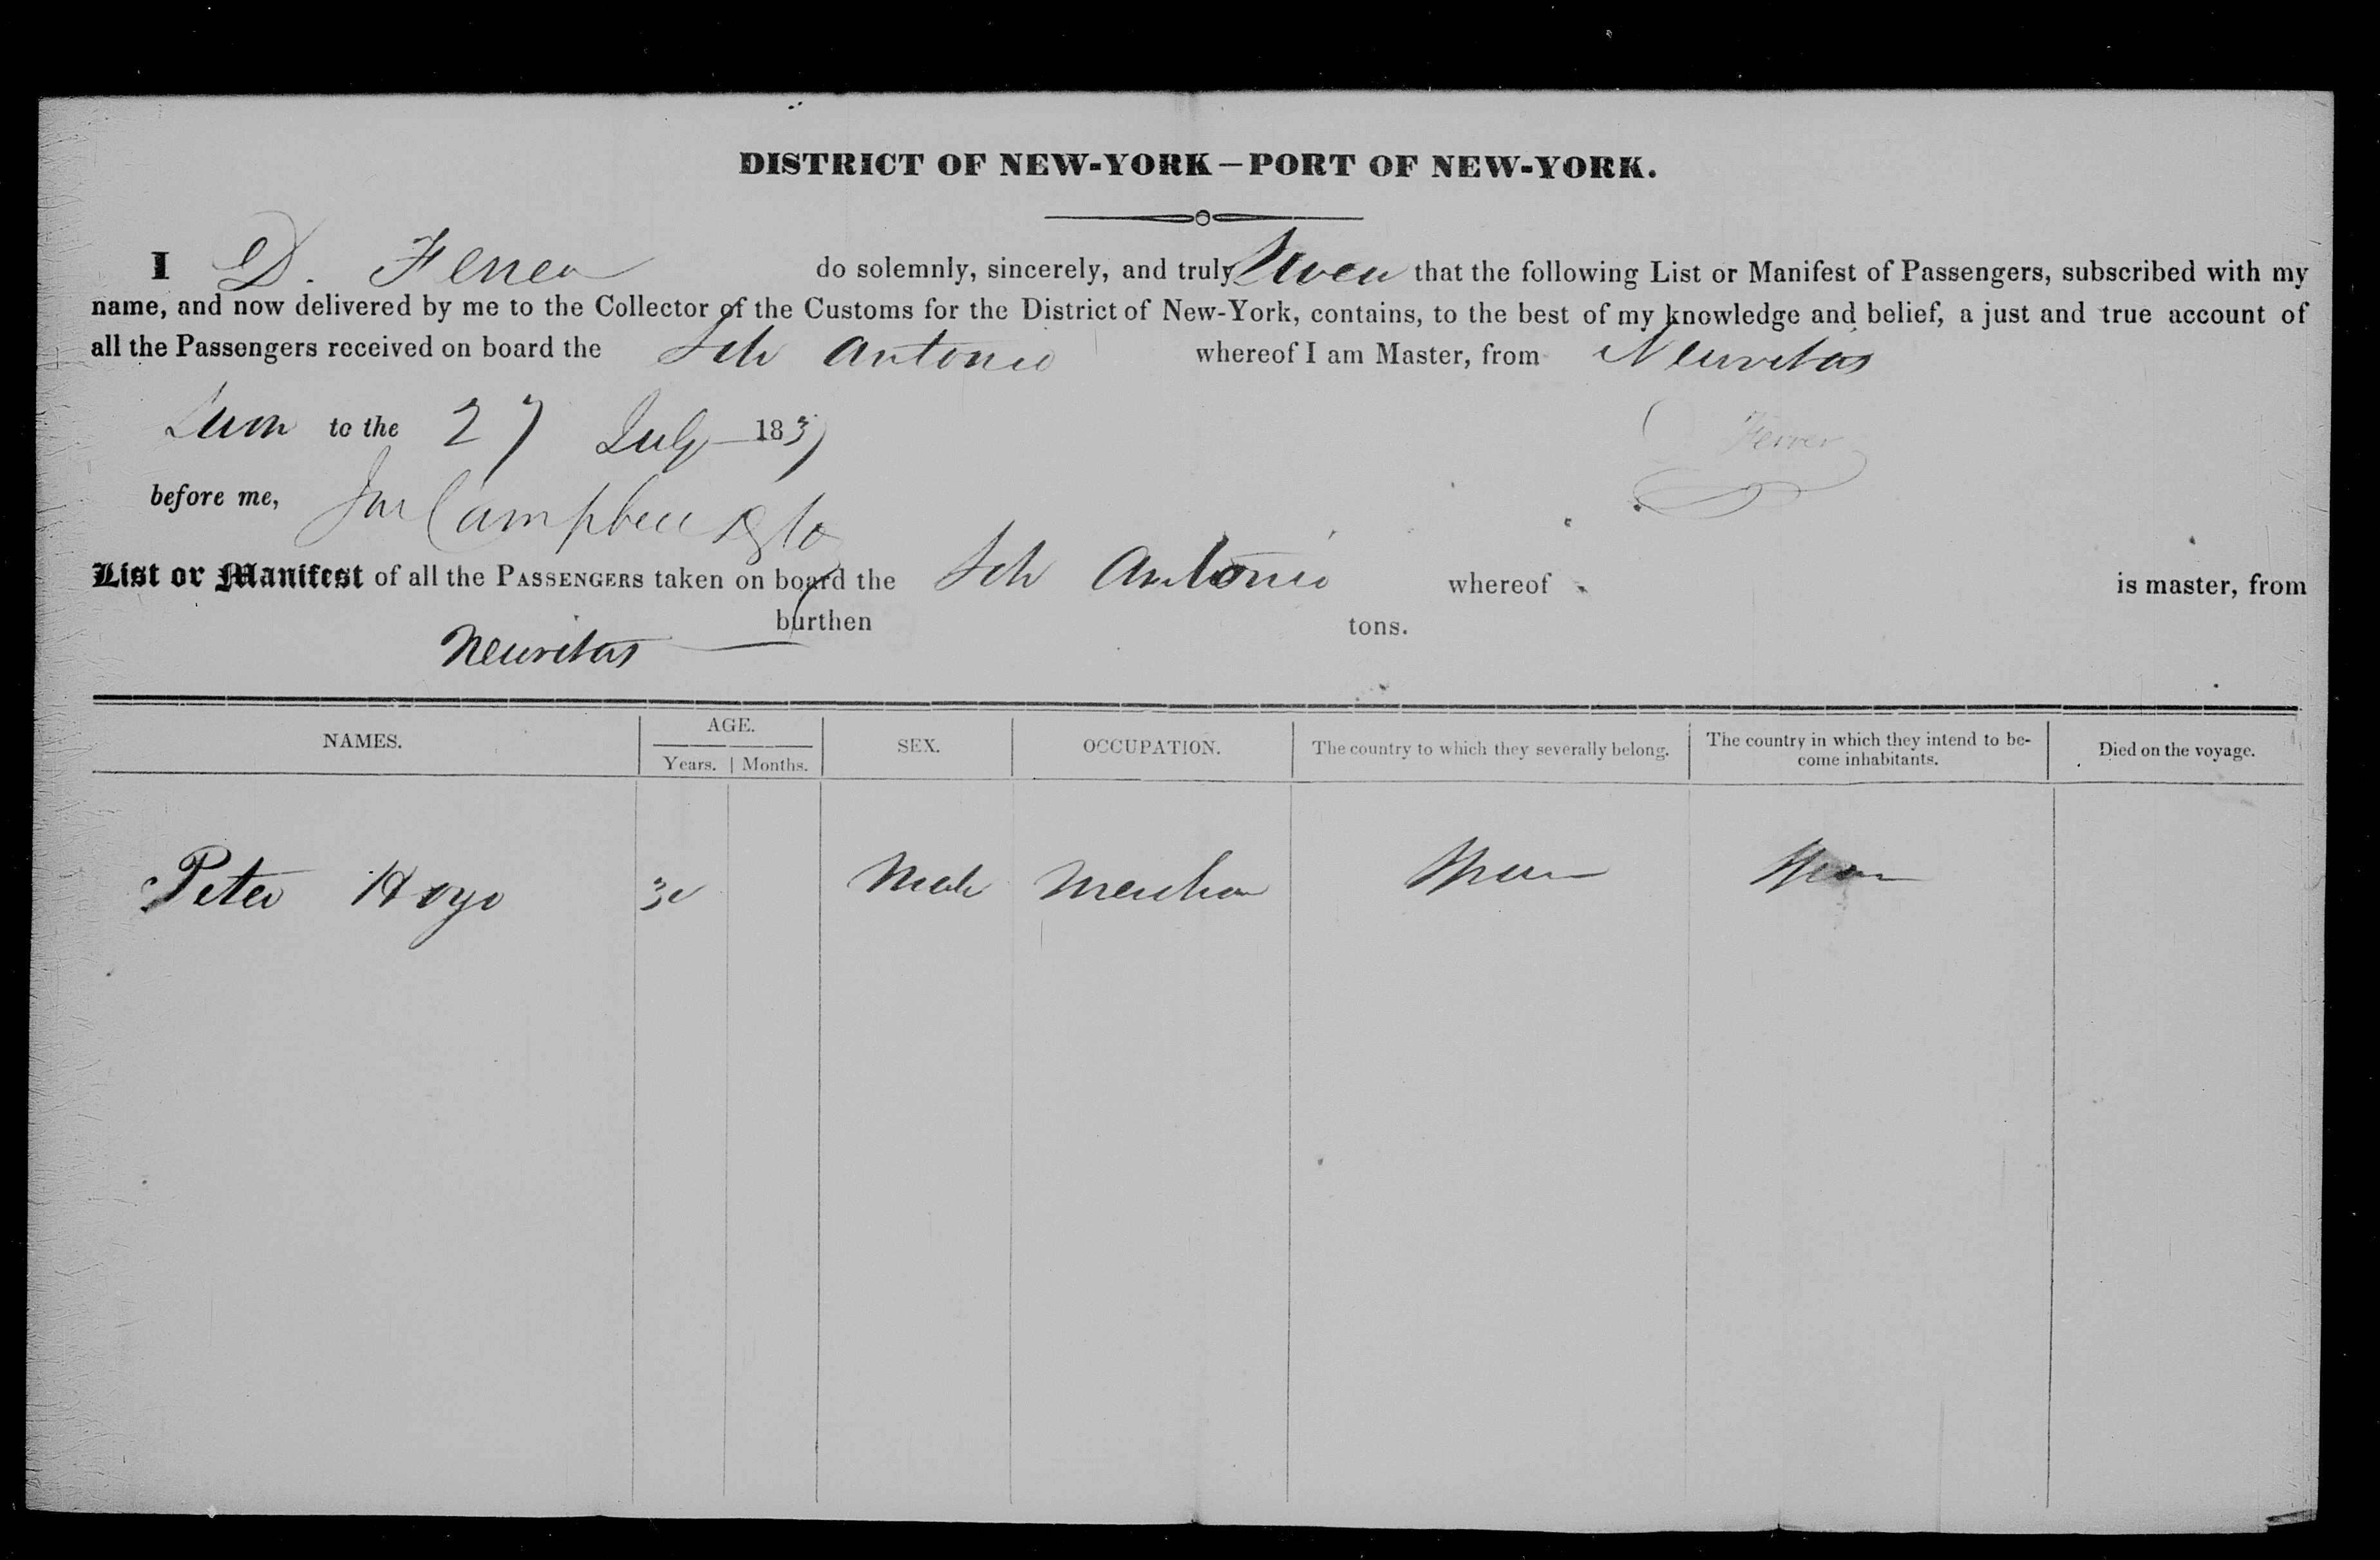 DISTRICT OF NEW-YORK—PORT OF NEW-YORK.
I D. Ferrer do solemnly, sincerely, and truly Swear that the following List or Manifest of Passengers, subscribed with my
name, and now delivered by me to the Collector of the Customs for the District of New-York, contains, to the best of my knowledge and belief, a just and true account of
all the Passengers received on board the Sch Antonio whereof I am Master, from Neuvitas
Sworn to the 27 July 1837
Ferrer
before me, Campbell
List or Manifest of all the PASSENGERS taken on board the Sch Antonio whereof is master, from
Neuvitas burthen tons.
NAMES. AGE. SEX. OCCUPATION. The country to which they severally belong. The country in which they intend to be-
come inhabitants. Died on the voyage.
Years. Months.
Peter Hoyo 30 Male Merchan Spain Spain